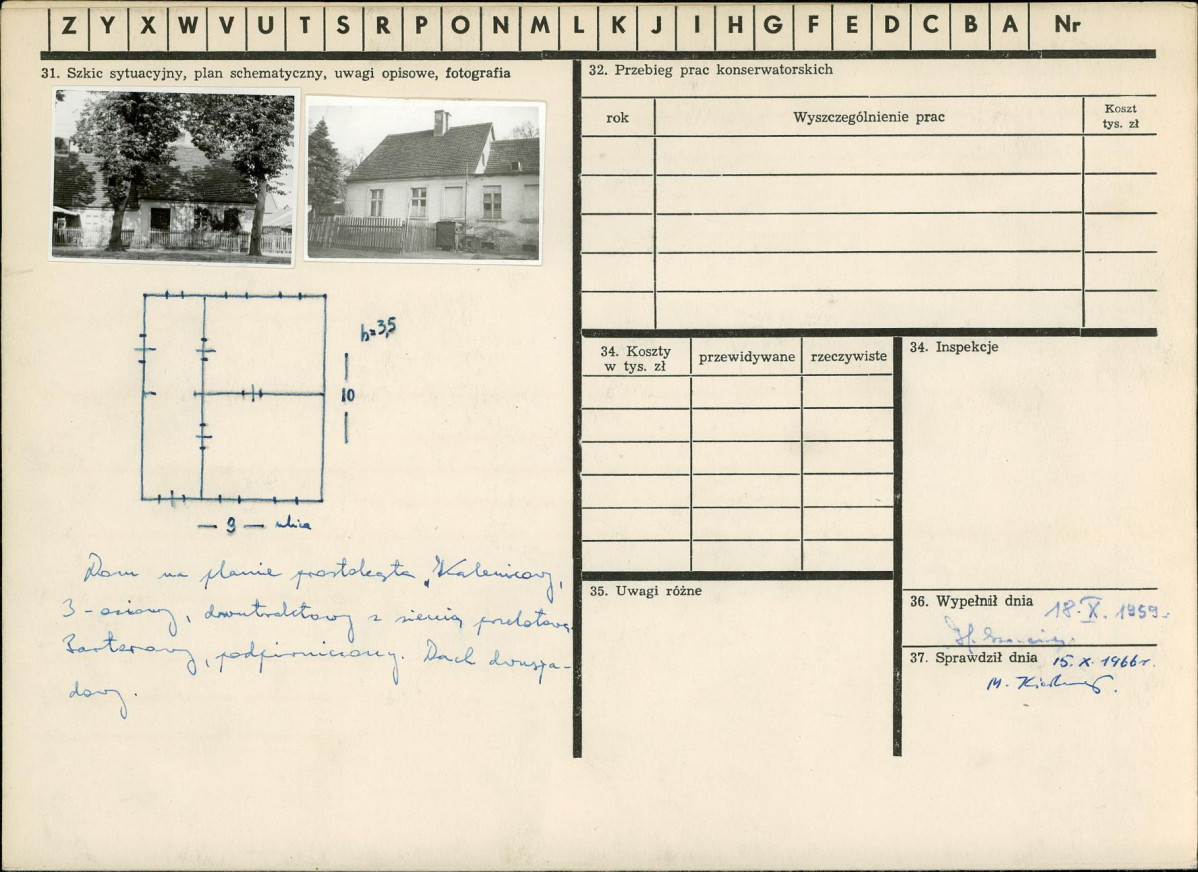 Z Y X W V U T S R P O N M L K J I H G F E D C B A Nr
31. Szkic sytuacyjny, plan schematyczny, uwagi opisowe, fotografia
h=3,5
10
— 9 — ulica
Dom na planie prostokąta,
3-osiowy, dwutraktowy z sienią przelotową.
Parterowy, podpiwniczony. Dach dwuspa-
dowy.
32. Przebieg prac konserwatorskich
rok
Wyszczególnienie prac
Koszt
tys. zł
34. Koszty
w tys. zł
przewidywane
rzeczywiste
34. Inspekcje
35. Uwagi różne
36. Wypełnił dnia 18.X.1959.
37. Sprawdził dnia 15.X.1966r.
M.